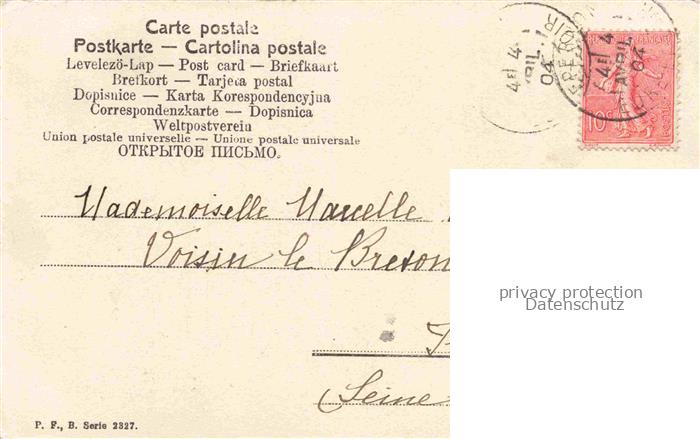 Carte postale
Postkarte — Cartolina postale
Levelezö-Lap — Post card — Briefkaart
Brefkort — Tarjeta postal
Dopisnice — Karta Korespondencyjna
Correspondenzkarte — Dopisnica
Weltpostverein
Union postale universelle — Unione postale universale
ОТКРЫТОЕ ПИСЬМО.
4E 4
AVRIL
04
10c
Mademoiselle Marcelle
Voisin le Breton
Seine
privacy protection
Datenschutz
P. F., B. Serie 2327.